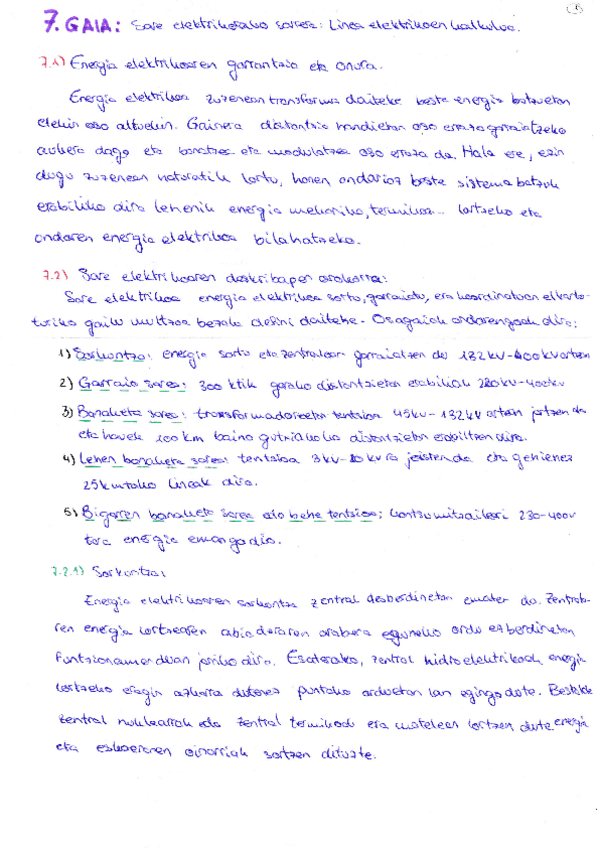 7. GAIA: Sare elektrikorako sarrera: Linea elektrikoen kalkulua.
7.1) Energia elektrikoaren garrantzia eta onura.
Energia elektrikoa zuzenean transforma daiteke beste energia batzuetan
etekin oso altuekin. Gainera distantzia handietan oso erraza garraiatzeko
aukera dago eta banatzea eta modulatzea oso erraza da. Hala ere, ezin
dugu zuzenean naturatik lortu, honen ondorioz beste sistema batzuk
erabiliko dira lehenik energia mekaniko, termikoa... lortzeko eta
ondoren energia elektrikoa bilakatzeko.
7.2) Sare elektrikoaren deskribapen orokorra:
Sare elektrikoa energia elektrikoa sortu, garraiatu, era koordinatuan elkarto-
turiko gailu multzoa bezala defini daiteke. Osagaiak ondorengoak dira:
1) Sorkuntza: energia sortu eta zentralean garraiatzen da 132kV-400kV artean
2) Garraio sarea: 300 ktik gorako distantzietan erabiliak 220kV-400kV
3) Banaketa sarea: transformadoreetan tentsioa 45kV-132kV artean jaitzen da
eta hauek 100 km baino gutxiagoko distantzietan erabiltzen dira.
4) Lehen banaketa sarea: tentsioa 3kV-20kVra jaisten da eta gehienez
25kmtako lineak dira.
5) Bigarren banaketa sarea edo behe tentsioa: kontsumitzaileari 230-400V
tara energia emango dio.
7.2.1) Sorkuntza:
Energia elektrikoaren sorkuntza zentral desberdinetan ematen da. Zentral-
ren energia lortzearen abiaduraren arabera eguneko ordu ezberdinetan
funtzionamenduan jarriko dira. Esaterako, zentral hidroelektrikoak energia
lortzeko eragin azkarra dutenez puntako orduetan lan egingo dute. Bestalde
zentral nuklearrak edo zentral termikoak era motelean lortzen dute energia
eta eskaeraren oinarriak sortzen dituzte.